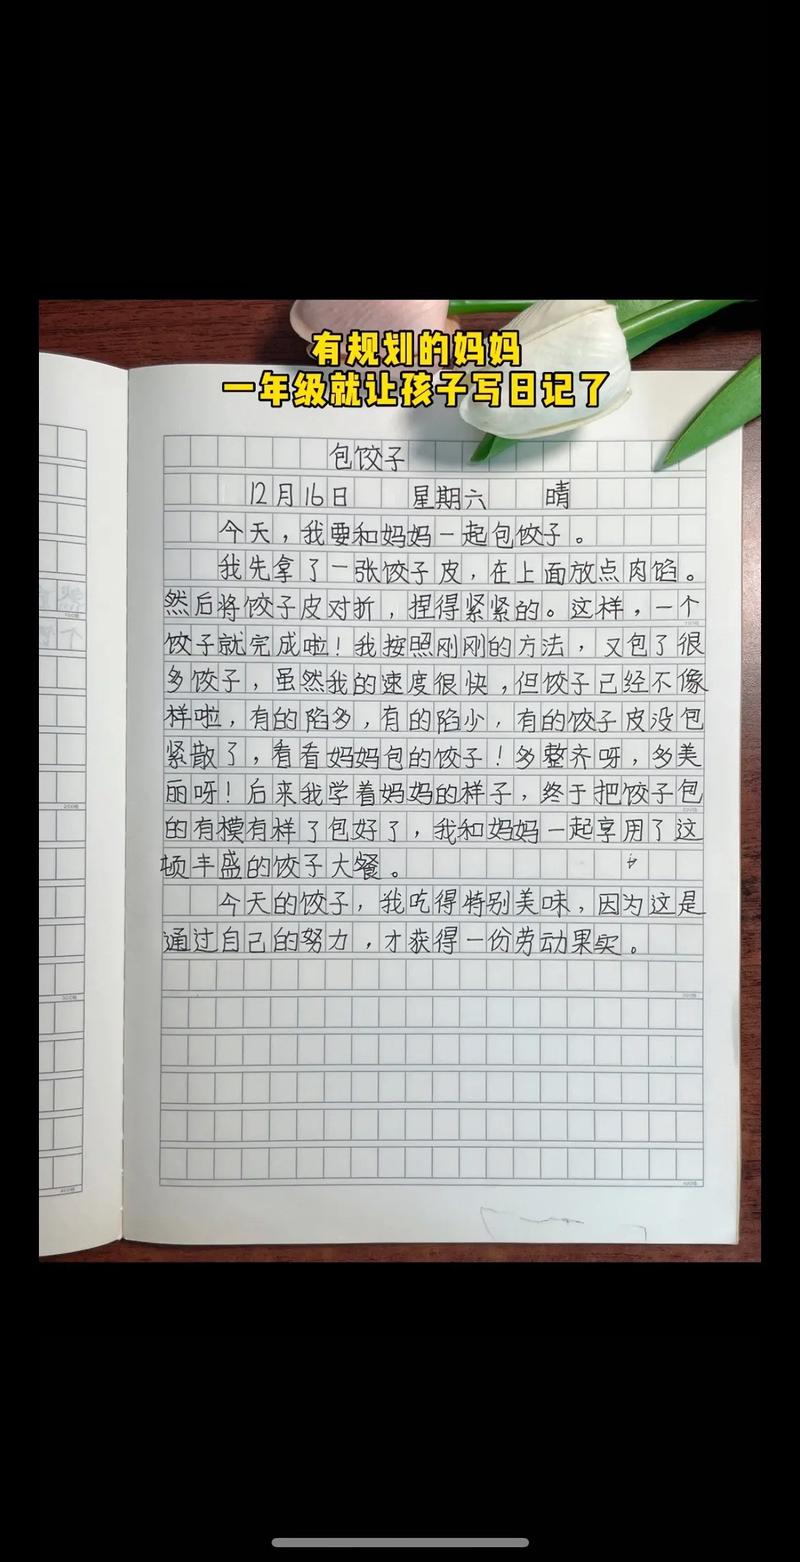 有规划的妈妈
一年级就让孩子写日记了
包饺子
12月16日 星期六 晴
今天，我要和妈妈一起包饺子。
我先拿了一张饺子皮，在上面放点肉馅。
然后将饺子皮对折，捏得紧紧的。这样，一个
饺子就完成啦！我按照刚刚的方法，又包了很
多饺子，虽然我的速度很快，但饺子已经不像
样啦，有的陷多，有的陷少，有的饺子皮没包
紧散了，看看妈妈包的饺子！多整齐呀，多美
丽呀！后来我学着妈妈的样子，终于把饺子包
的有模有样了包好了，我和妈妈一起享用了这
顿丰盛的饺子大餐。
今天的饺子，我吃得特别美味，因为这是
通过自己的努力，才获得一份劳动果实。